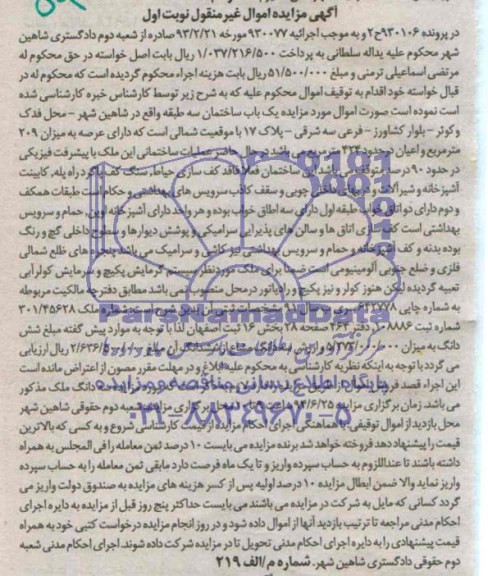 آگهی مزایده اموال غیر منقول نوبت اول
در پرونده ۹۳۰۱۰۶ح۲ و به موجب اجرائیه ۹۳۰۰۷۷ مورخه ۹۳/۲/۲۱ صادره از شعبه دوم دادگستری شاهین
شهر محکوم علیه یداله سلطانی به پرداخت ۱/۰۳۷/۲۱۶/۵۰۰ ریال بابت اصل خواسته در حق محکوم له
مرتضی اسماعیلی ترمنی و مبلغ ۵۱/۵۰۰/۰۰۰ ریال بابت هزینه اجراء محکوم گردیده است که محکوم له در
قبال خواسته خود اقدام به توقیف اموال محکوم علیه که به شرح زیر توسط کارشناس خبره کارشناسی شده
است نموده است صورت اموال مورد مزایده یک باب ساختمان سه طبقه واقع در شاهین شهر - محل فدک
و کوثر - بلوار کشاورز - فرعی سه شرقی - پلاک ۱۷ با موقعیت شمالی است که دارای عرصه به میزان ۲۰۹
مترمربع و اعیان در حدود ۴۲۴ مترمربع می باشد در حال حاضر عملیات ساختمانی این ملک با پیشرفت فیزیکی
در حدود ۹۰ درصد متوقف می باشد این ساختمان فعلا فاقد کف سازی حیاط، سنگ کف پاگرد راه پله، کابینت
آشپزخانه و شیرآلات و دربهای داخلی چوبی و سقف کاذب سرویس های بهداشتی و حکام است طبقات همکف
و دوم دارای دو اتاق خواب طبقه اول دارای سه اطاق خواب بوده و هر واحد دارای آشپزخانه اوپن، حمام و سرویس
بهداشتی است کف کلی اتاق ها و سالن های پذیرایی سرامیکی و پوشش دیوارها و سطوح داخلی گچ و رنگ
بوده بدنه و کف آشپزخانه و حمام و سرویس بهداشتی نیز کاشی و سرامیک می باشد پنجره های ضلع شمالی
فلزی و ضلع جنوبی آلومینیومی است ضمنا برای ملک موردنظر سیستم گرمایش پکیج و سرمایش کولر آبی
تعبیه گردیده لیکن هنوز کولر و نیز پکیج و رادیاتور در محل منصوب نمی باشد مطابق دفترچه مالکیت مربوطه
به شماره چاپی ۶۴۲۷۷۸ مشخصات ثبتی آن شماره ملک ۳۰۱/۴۵۶۲۸
شماره ثبت ۱۰۸۸۶ دفتر ۲۶۳ صفحه ۲۸ بخش ۱۶ ثبت اصفهان لذا با توجه به موارد پیش گفته مبلغ شش
دانگ به میزان ریال ارزیابی
می گردد با توجه به اینکه نظریه کارشناسی به محکوم علیه ابلاغ و در مهلت مقرر مصون از اعتراض مانده است
این اجراء قصد فروش ملک مذکور
می باشد. زمان برگزاری مزایده ۹۴/۶/۲۵ محل برگزاری مزایده شعبه دوم حقوقی شاهین شهر
محل بازدید از اموال توقیفی با هماهنگی اجرای احکام مزایده از قیمت کارشناسی شروع و به کسی که بالاترین
قیمت را پیشنهاد دهد فروخته خواهد شد برنده مزایده می بایست ۱۰ درصد ثمن معامله را فی المجلس به همراه
داشته باشند تا عنداللزوم به حساب سپرده واریز و تا یک ماه فرصت دارد مابقی ثمن معامله را به حساب سپرده
واریز نماید والا ضمن ابطال مزایده ۱۰ درصد اولیه پس از کسر هزینه های مزایده به صندوق دولت واریز می
گردد کسانی که مایل به شرکت در مزایده می باشند می بایست حداکثر پنج روز قبل از مزایده به دایره اجرای
احکام مدنی مراجعه تا ترتیب بازدید آنها از اموال داده شود و در روز انجام مزایده درخواست کتبی خود به همراه
قیمت پیشنهادی را به دایره اجرای احکام مدنی تحویل تا در مزایده شرکت داده شوند. اجرای احکام مدنی شعبه
دوم حقوقی دادگستری شاهین شهر. شماره م/الف ۲۱۹
ParsNamadData
پایگاه اطلاع رسانی مناقصه و مزایده
۰۲۱-۸۸۳۴۹۶۷۰-۵